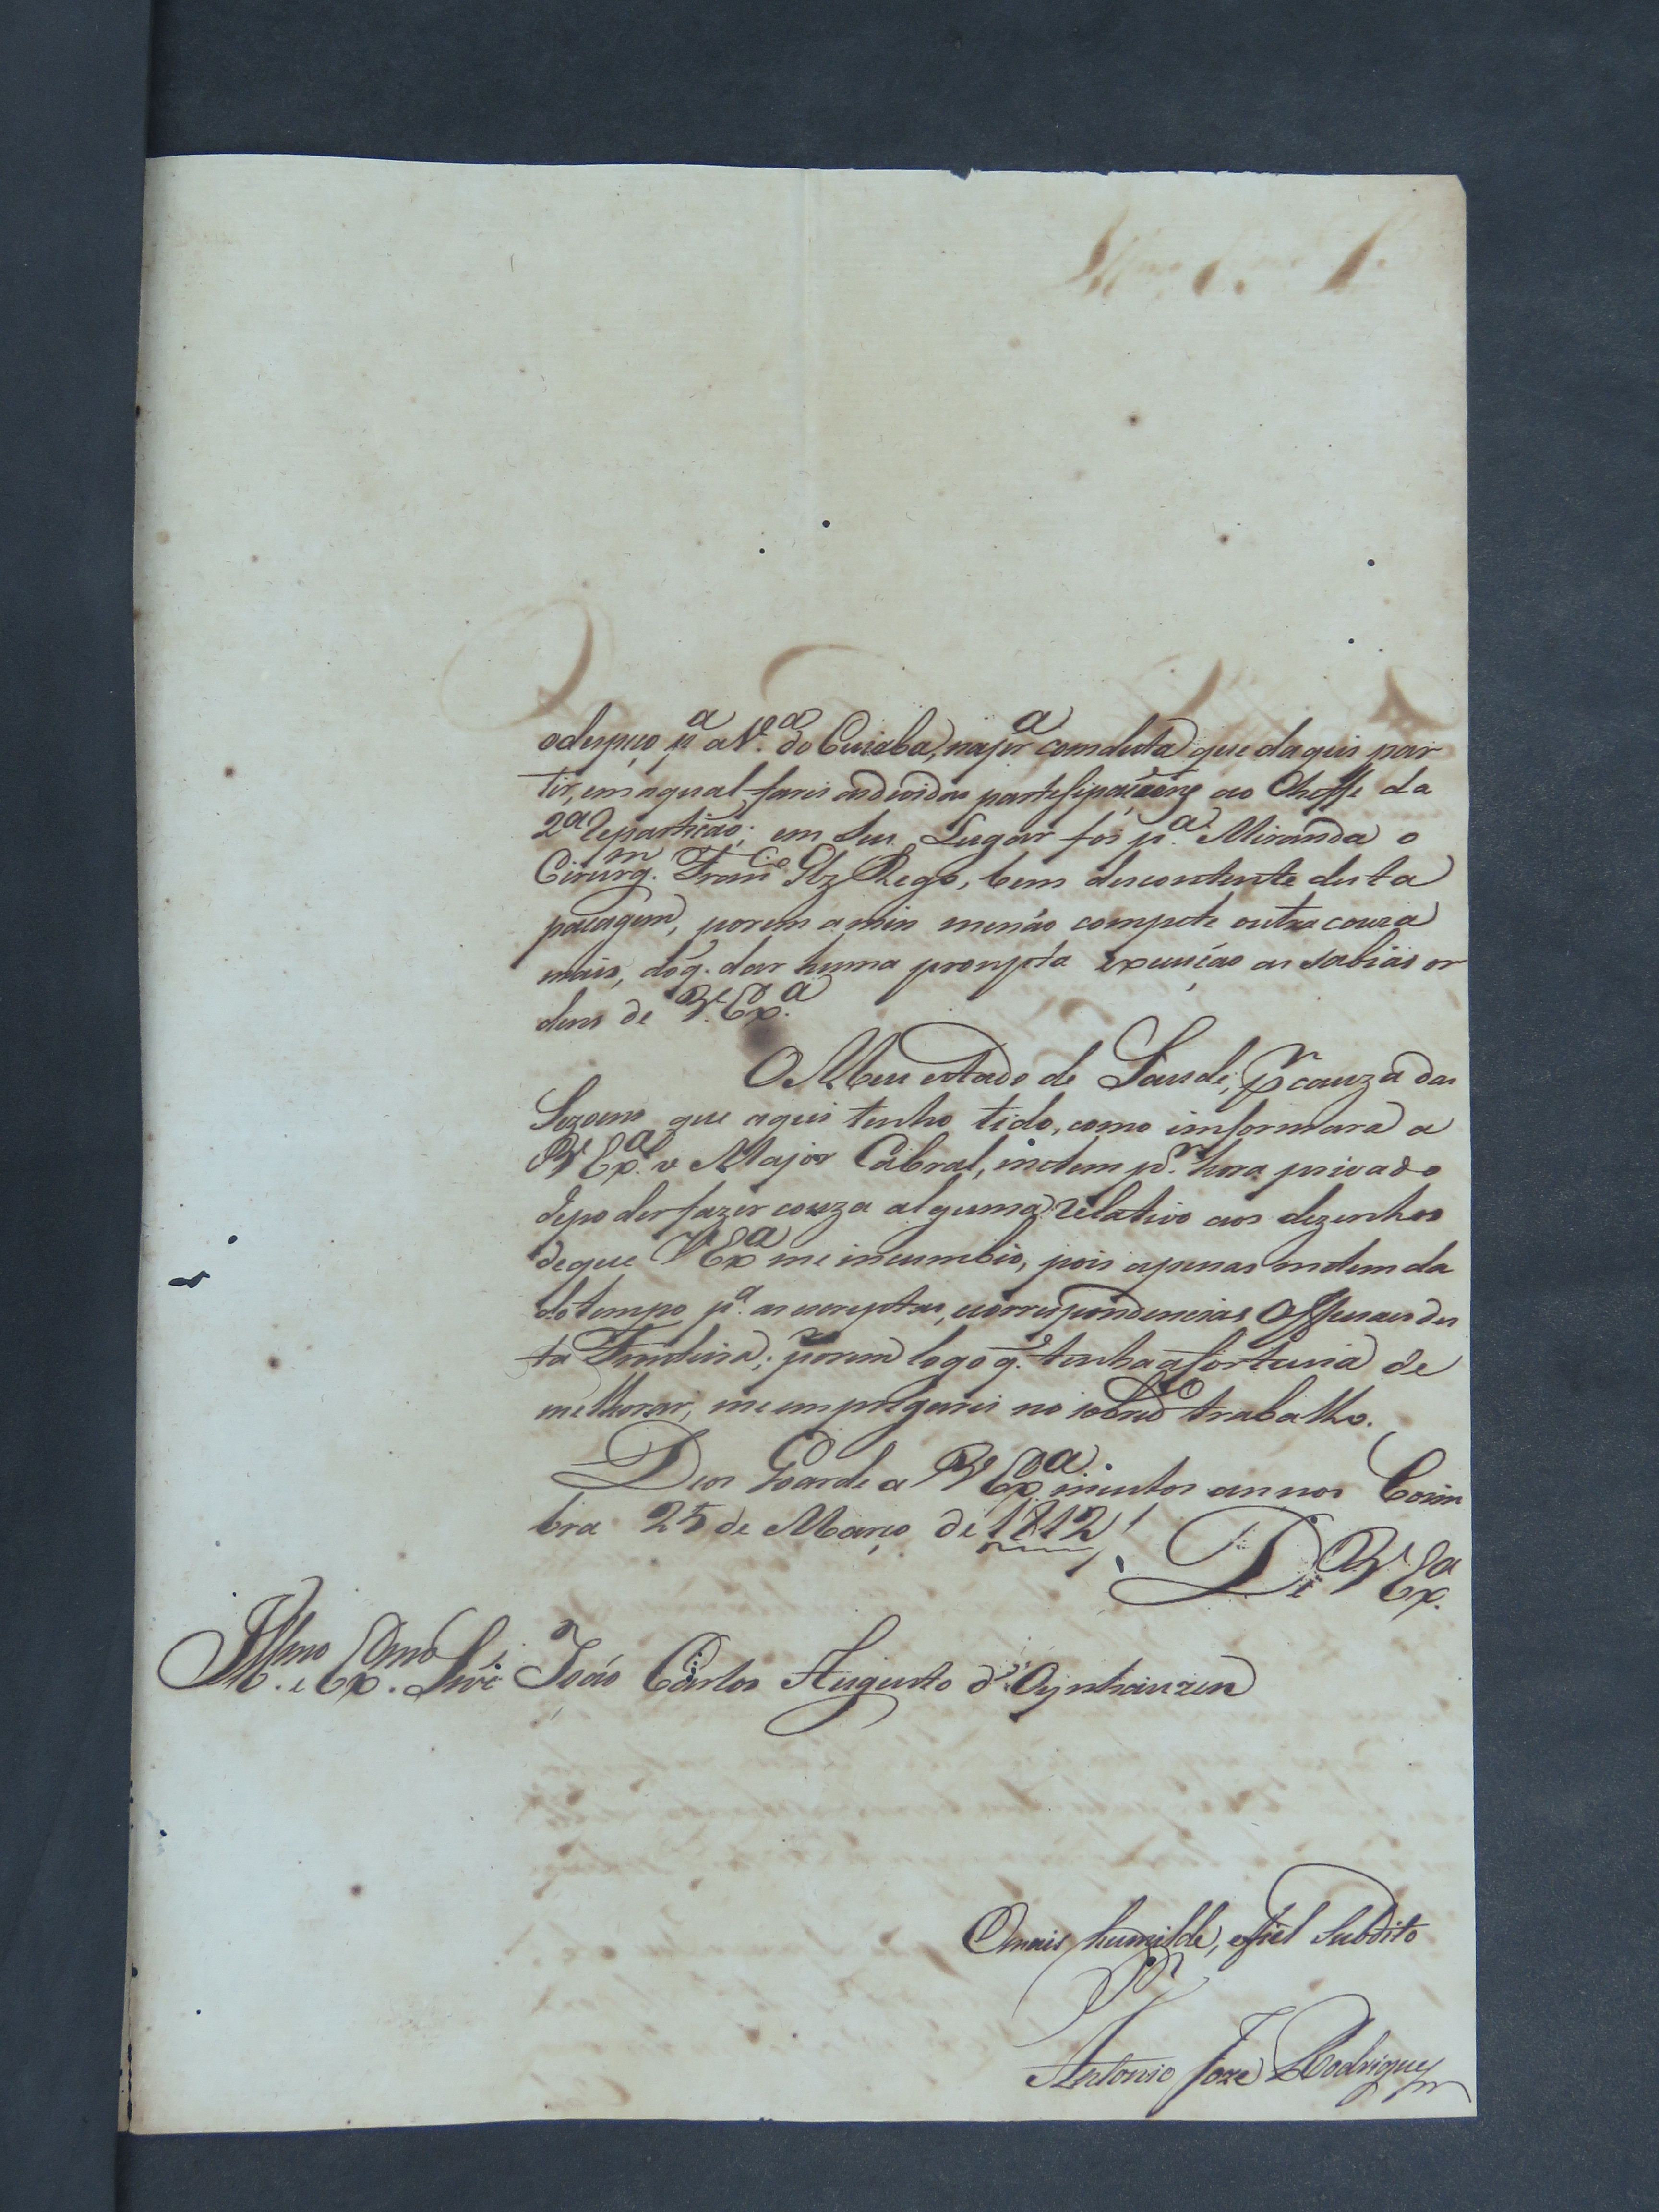 odespeço p.ª a V.ª do Cuiabá, na pr.ª comduta que daqui par
tir, em a qual farei as devidas partesipaçoens ao Cheffe da
2ª Repartição; em seu Lugar foi p.ª Miranda o
Cirurg.m Fran.co Glz Rego, bem descontente desta
paçagem, porem a mim me não compete outra couza
mais, do q. dar huma prompta execução as sabias or
dens de V. Ex.ª
O Meu estado de Saude, p.r cauza das
Sezoens que aqui tenho tido, como imformará a
V. Ex.ª o Major Cabral, me tem p.r hora privado
de poder fazer couza alguma relativo aos dezenhos
de que V Ex.ª me incumbio, pois apenas me tem da
do tempo p.ª as correspondencias Officiaes des
ta Fronteira; porem logo q.e tenha a fortuna de
melhorar, me empregarei no sobred.o trabalho.
Deos Goarde a V Ex.ª muitos annos Coim
bra 25 de Março de 1812
De V. Ex.ª
Ill.mo e Ex.mo Snr. João Carlos Augusto d'Oynhauzen
O mais humilde, e fiel Subdito
Antonio Joze Rodrigues